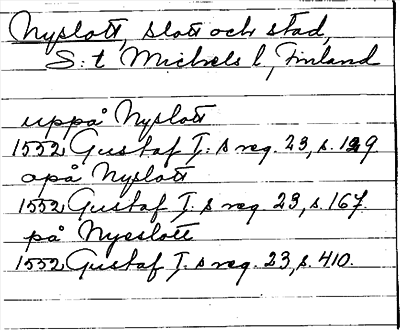 Nyslott, slott och stad,
S:t Michels l, Finland
uppå Nyslott
1552 Gustaf I:s reg. 23, s. 129
opå Nyslott
1552 Gustaf I:s reg. 23, s. 167.
på Nyeslott
1552 Gustaf I:s reg. 23, s. 410.